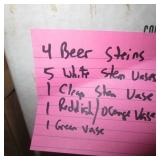 4 Beer Steins
5 White Stem Vases
1 Clear Stem Vase
1 Reddish/Orange Vase
1 Green Vase